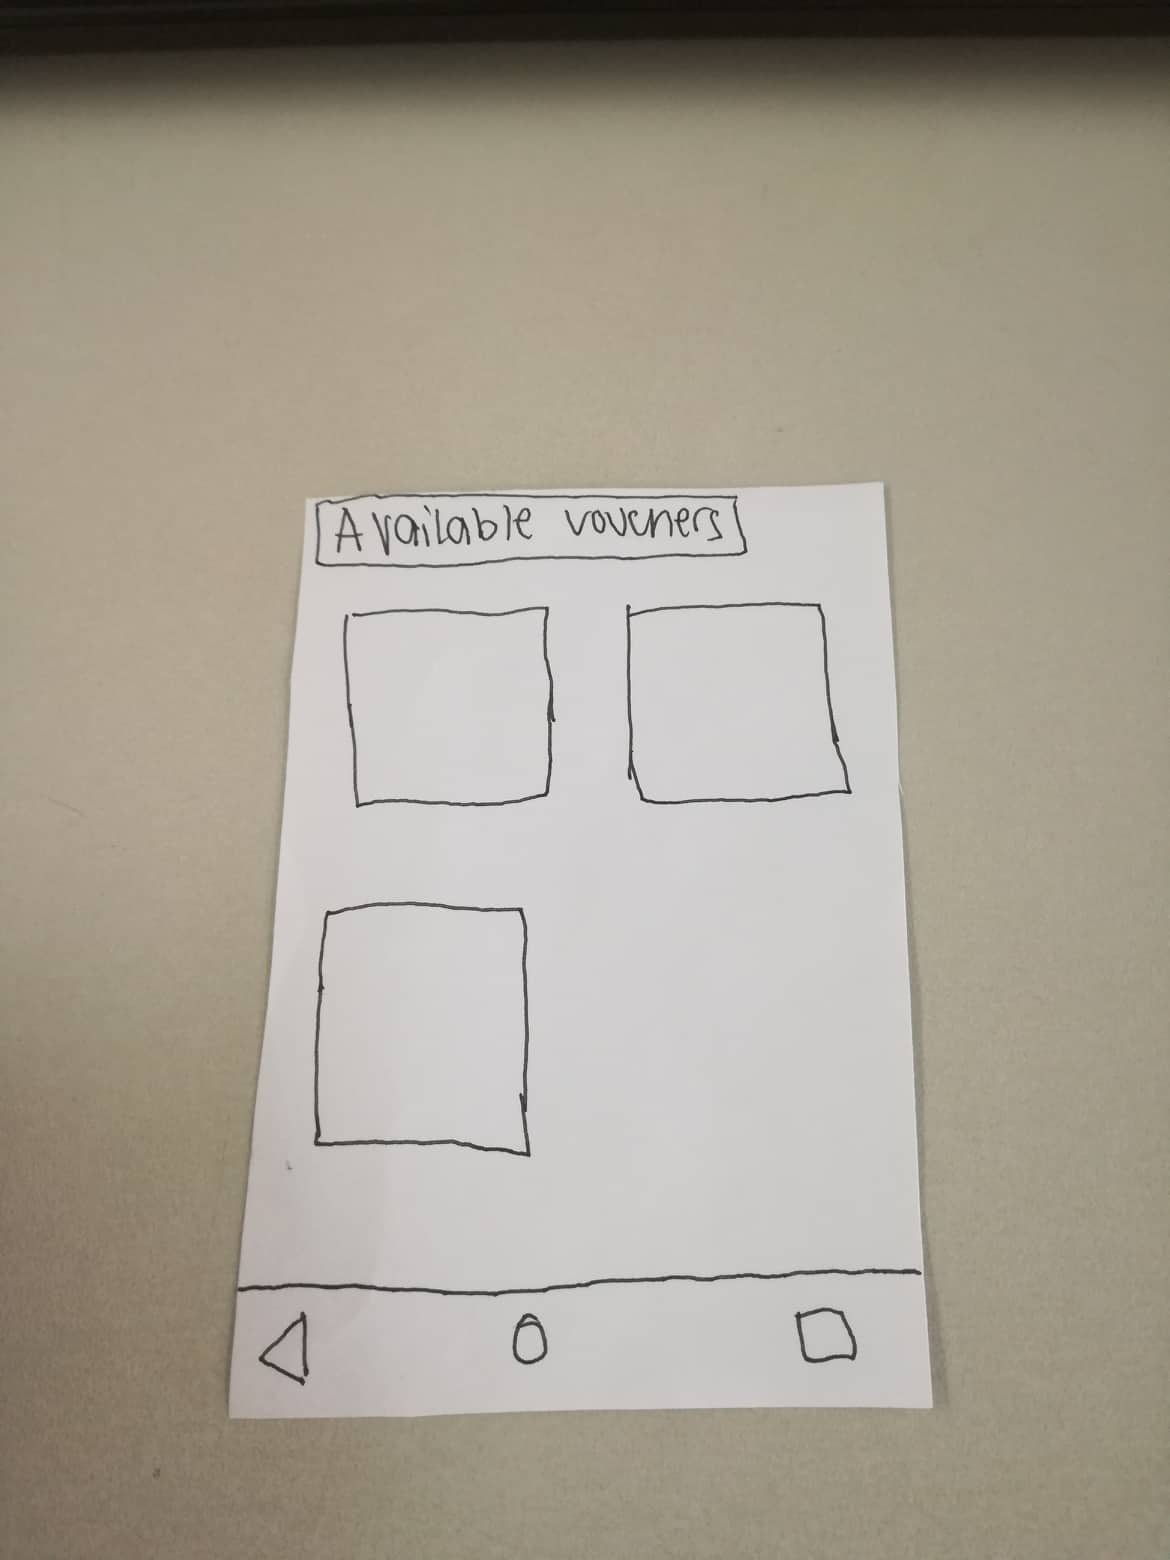 Available vouchers